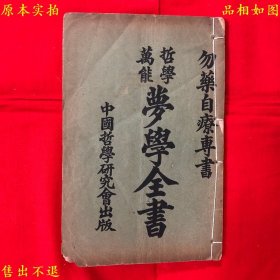 原本实拍
品相如图
勿藥自療專書
哲學
萬能
夢學全書
中國哲學研究會出版
售出不退
非诚勿扰